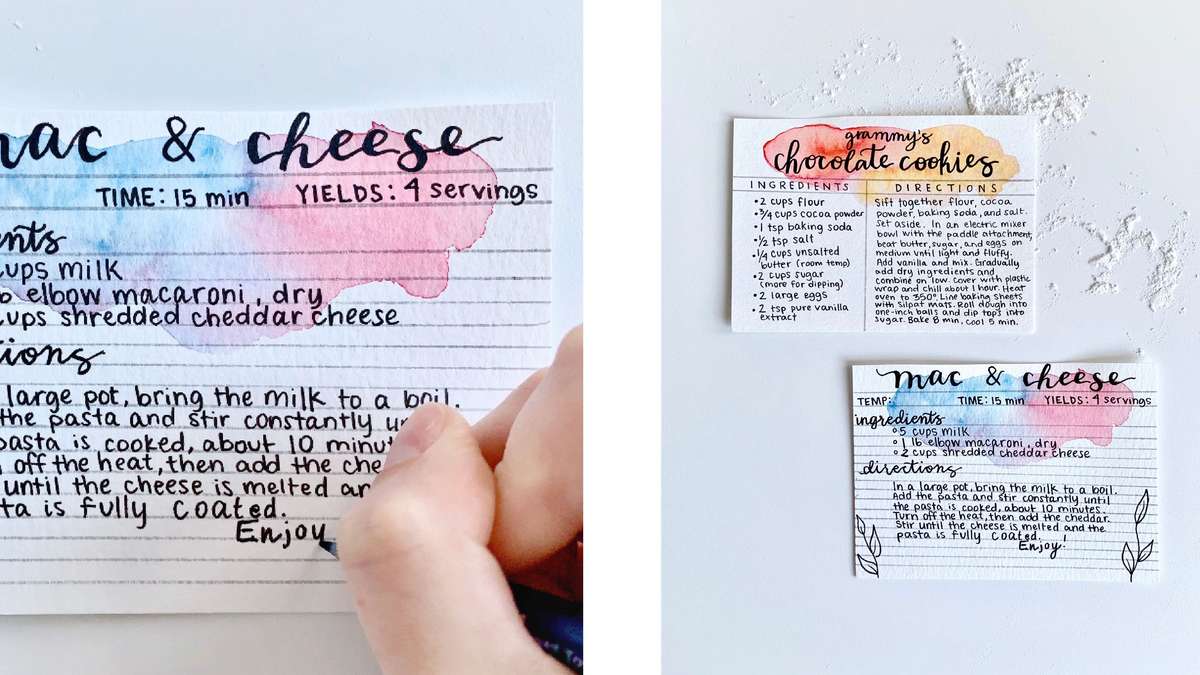 mac & cheese
TIME: 15 min YIELDS: 4 servings
cups milk
elbow macaroni, dry
cups shredded cheddar cheese
large pot, bring the milk to a boil.
the pasta and stir constantly
pasta is cooked, about 10
off the heat, then add the
until the cheese is melted
is fully coated.
Enjoy
grammy's
chocolate cookies
INGREDIENTS
• 2 cups flour
• 3/4 cups cocoa powder
• 1 tsp baking soda
• 1/2 tsp salt
• 1/4 cups unsalted
butter (room temp)
• 2 cups sugar
(more for dipping)
• 2 large eggs
• 2 tsp pure vanilla
extract
DIRECTIONS
Sift together flour, cocoa
powder, baking soda, and salt.
Set aside. In an electric mixer
bowl with the paddle attachment,
beat butter, sugar, and eggs on
medium until light and fluffy.
Add vanilla and mix. Gradually
add dry ingredients and
combine on low. Cover with plastic
wrap and chill about 1 hour. Heat
oven to 350°. Line baking sheets
with Silpat mats. Roll dough into
one-inch balls and dip tops into
sugar. Bake 8 min, cool 5 min.
mac & cheese
TEMP: TIME: 15 min YIELDS: 4 servings
ingredients
○ 5 cups milk
○ 1 lb elbow macaroni, dry
○ 2 cups shredded cheddar cheese
directions
In a large pot, bring the milk to a boil.
Add the pasta and stir constantly until
the pasta is cooked, about 10 minutes.
Turn off the heat, then add the cheddar.
Stir until the cheese is melted and the
pasta is fully coated.
Enjoy!